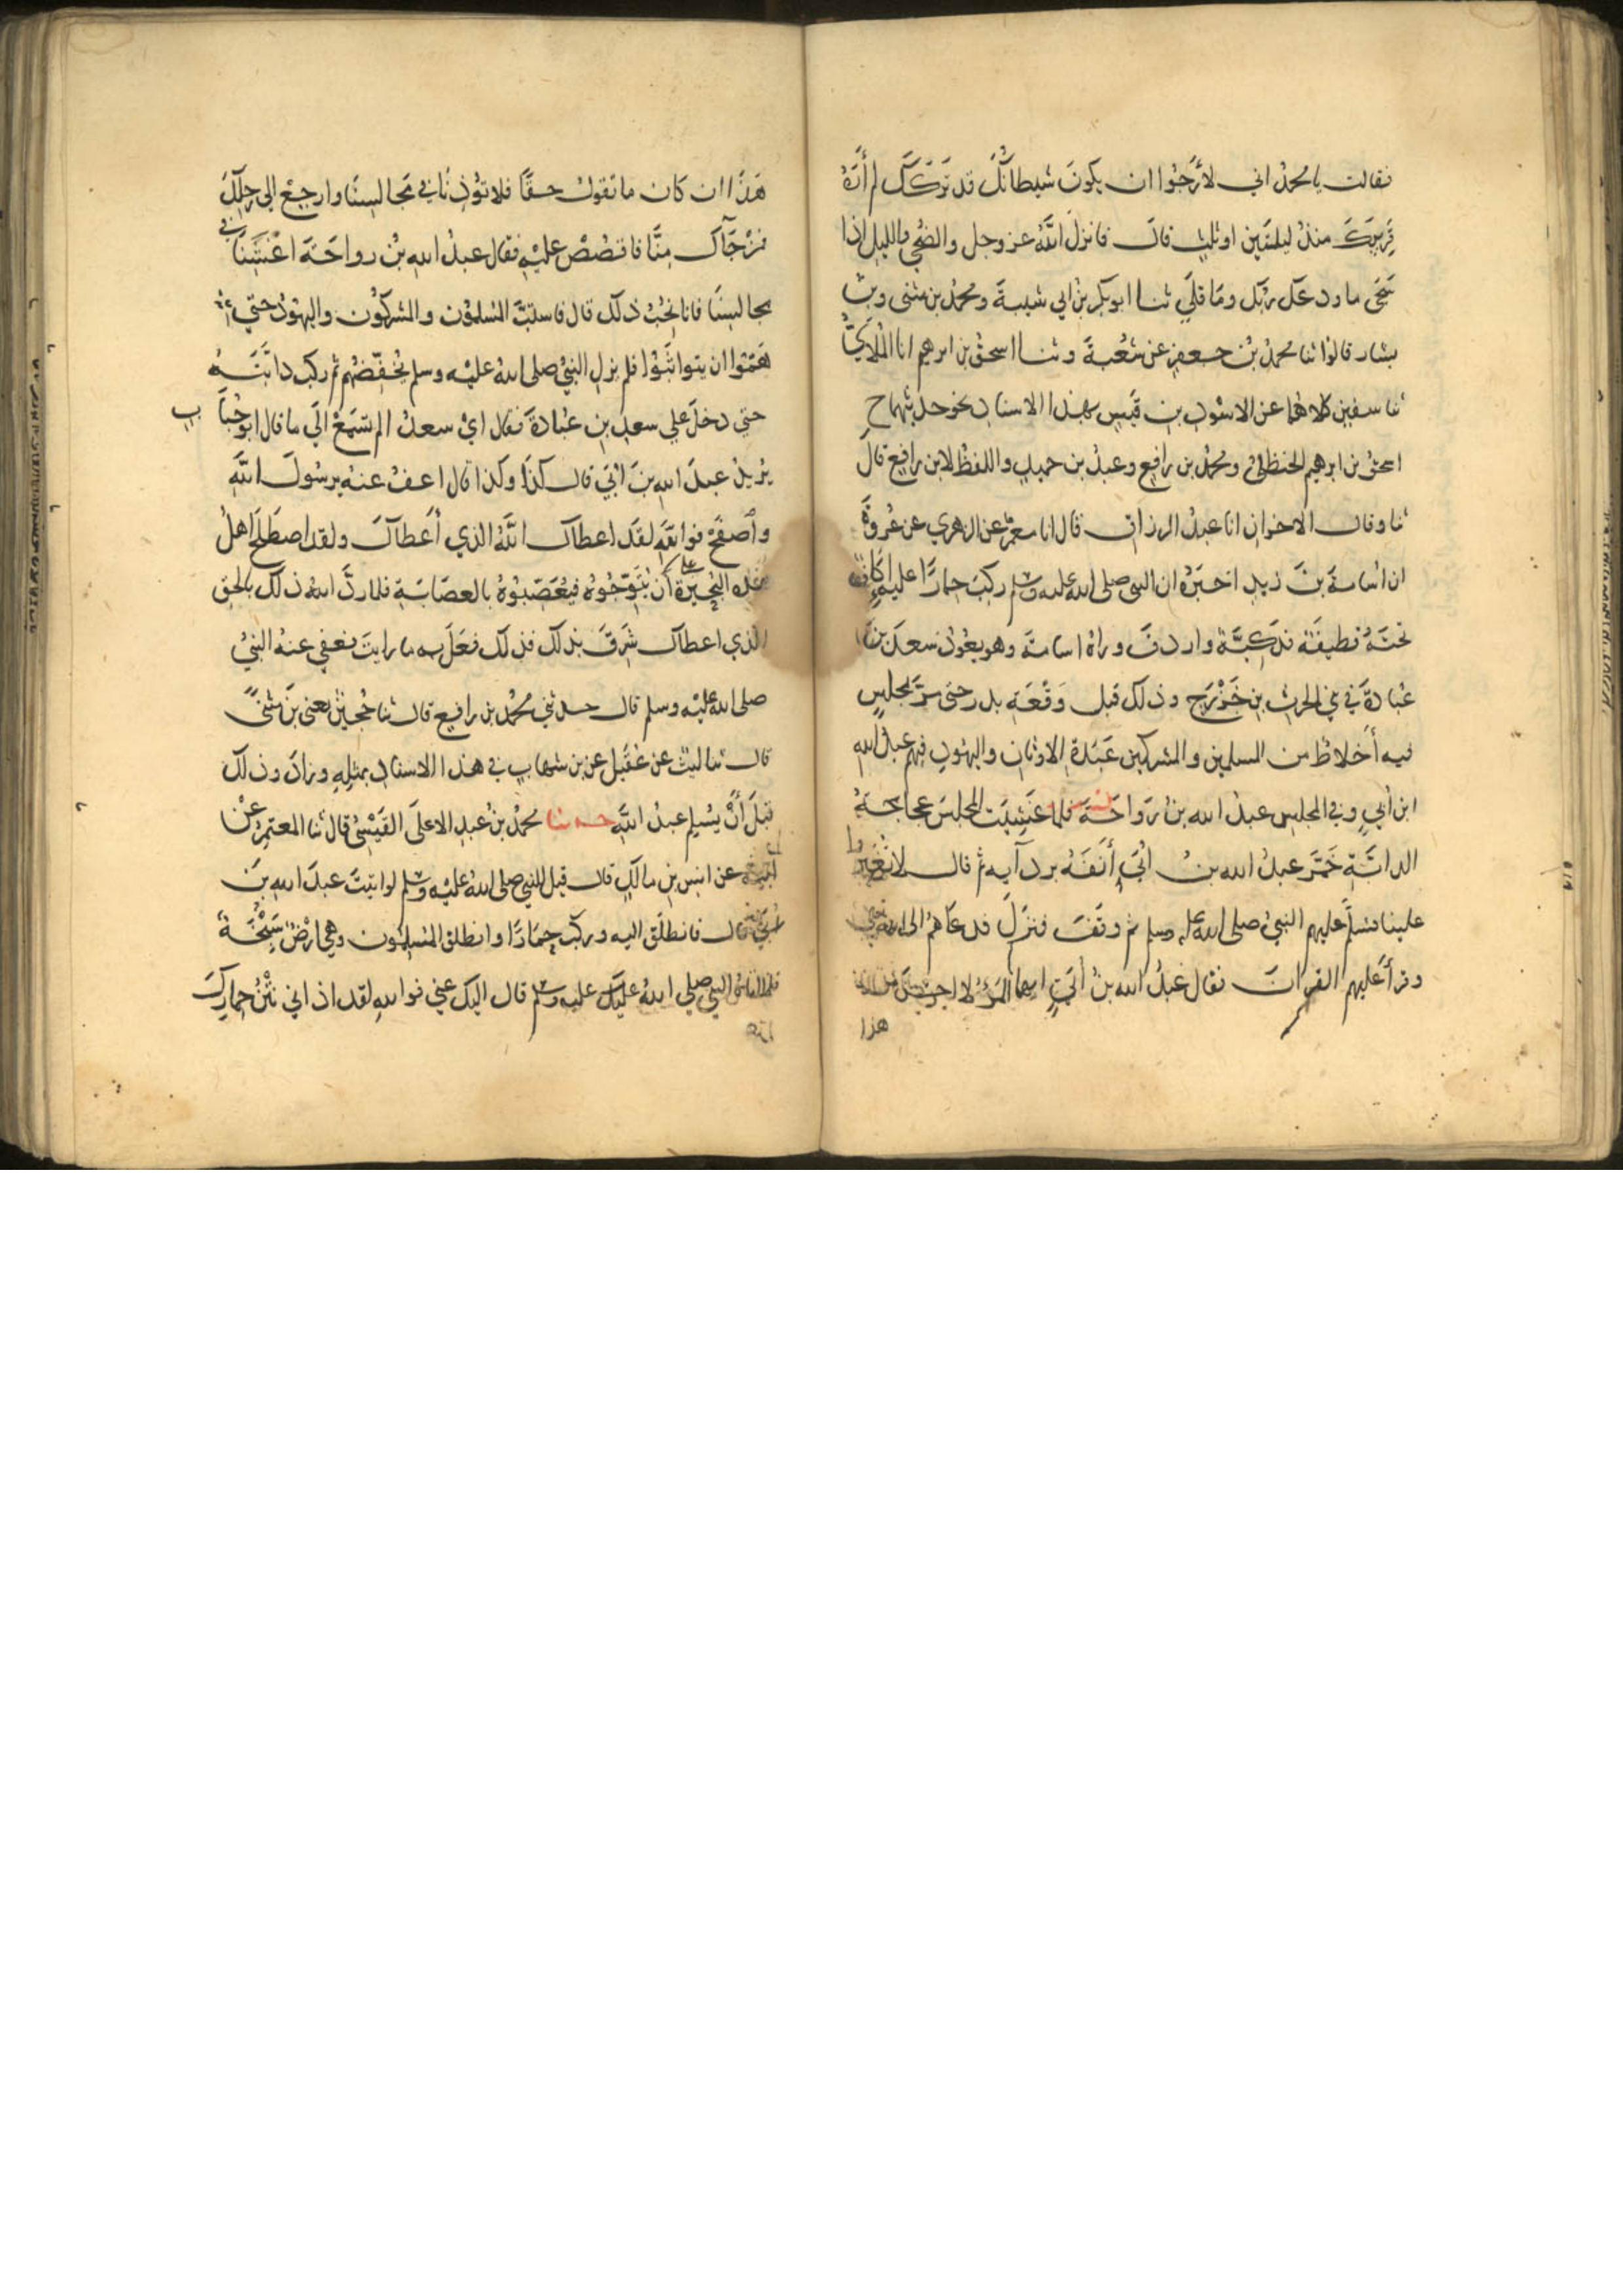 فقالت يا محمد اني لأرجوا ان يكون شيطانك قد تركك لم أره
قربك منذ ليلتين او ثلث قال فانزل الله عز وجل والضحى والليل اذا
سجى ما ودعك ربك وما قلى ثنا ابو بكر بن ابي شيبة ومحمد بن مثنى وبن
بشار قالوا ثنا محمد بن جعفر عن شعبة وثنا اسحق بن ابرهيم انا الملائي
ثنا سفين كلاهما عن الاسود بن قيس بهذا الاسناد نحو حديثهما ح
اسحق بن ابرهيم الحنظلي ومحمد بن رافع وعبد بن حميد واللفظ لابن رافع قال
ثنا وقال الاخران انا عبد الرزاق قال انا معمر عن الزهري عن عروة
ان اسامة بن زيد اخبره ان النبي صلى الله عليه وسلم ركب حمارا عليه اكاف
تحته قطيفة فدكية واردف وراه اسامة وهو يعود سعد بن
عبادة في بني الحرث بن خزرج وذلك قبل وقعة بدر حتى مر بمجلس
فيه أخلاط من المسلمين والمشركين عبدة الاوثان واليهود فيهم عبد الله
ابن أبي وفي المجلس عبد الله بن رواحة فلما غشيت المجلس عجاجة
الدابة خمر عبد الله بن ابي أنفه بردآيه ثم قال لا تغبروا
علينا فسلم عليهم النبي صلى الله عليه وسلم ثم وقف فنزل فدعاهم الى الله
وقرأ عليهم القران فقال عبد الله بن أبي ايها المرؤ لا احسن من
هذا
هذا ان كان ما تقول حقا فلا تؤذنا في مجالسنا وارجع الى رحلك
فمن جآك منا فاقصص عليه فقال عبد الله بن رواحة اغشنا في
مجالسنا فانا نحب ذلك قال فاستب المسلمون والمشركون واليهود حتى
هموا ان يتواثبوا فلم يزل النبي صلى الله عليه وسلم يخفضهم ثم ركب دابته
حتى دخل على سعد بن عبادة فقال اي سعد الم تسمع الى ما قال ابو حباب
يريد عبد الله بن ابي قال كذا وكذا قال اعف عنه يرسول الله
وأصفح فوالله لقد اعطاك الله الذي أعطاك ولقد اصطلح اهل
هذه البحيرة على أن يتوجوه فيعصبوه بالعصابة فلما رد الله ذلك بالحق
الذي اعطاك شرق بذلك فذلك فعل به ما رايت فعفى عنه النبي
صلى الله عليه وسلم قال حدثني محمد بن رافع قال ثنا حجين يعني بن مثنى
قال ثنا ليث عن عقيل عن بن شهاب في هذا الاسناد بمثله وزاد وذلك
قبل أن يسلم عبد الله حدثنا محمد بن عبد الاعلى القيسي قال ثنا المعتمر عن
ابيه عن انس بن مالك قال قيل للنبي صلى الله عليه وسلم لو اتيت عبد الله بن
ابي قال فانطلق اليه وركب حمارا وانطلق المسلمون وهي ارض سبخة
فلما اتاه النبي صلى الله عليه وسلم قال اليك عني فوالله لقد اذاني نتن حمارك